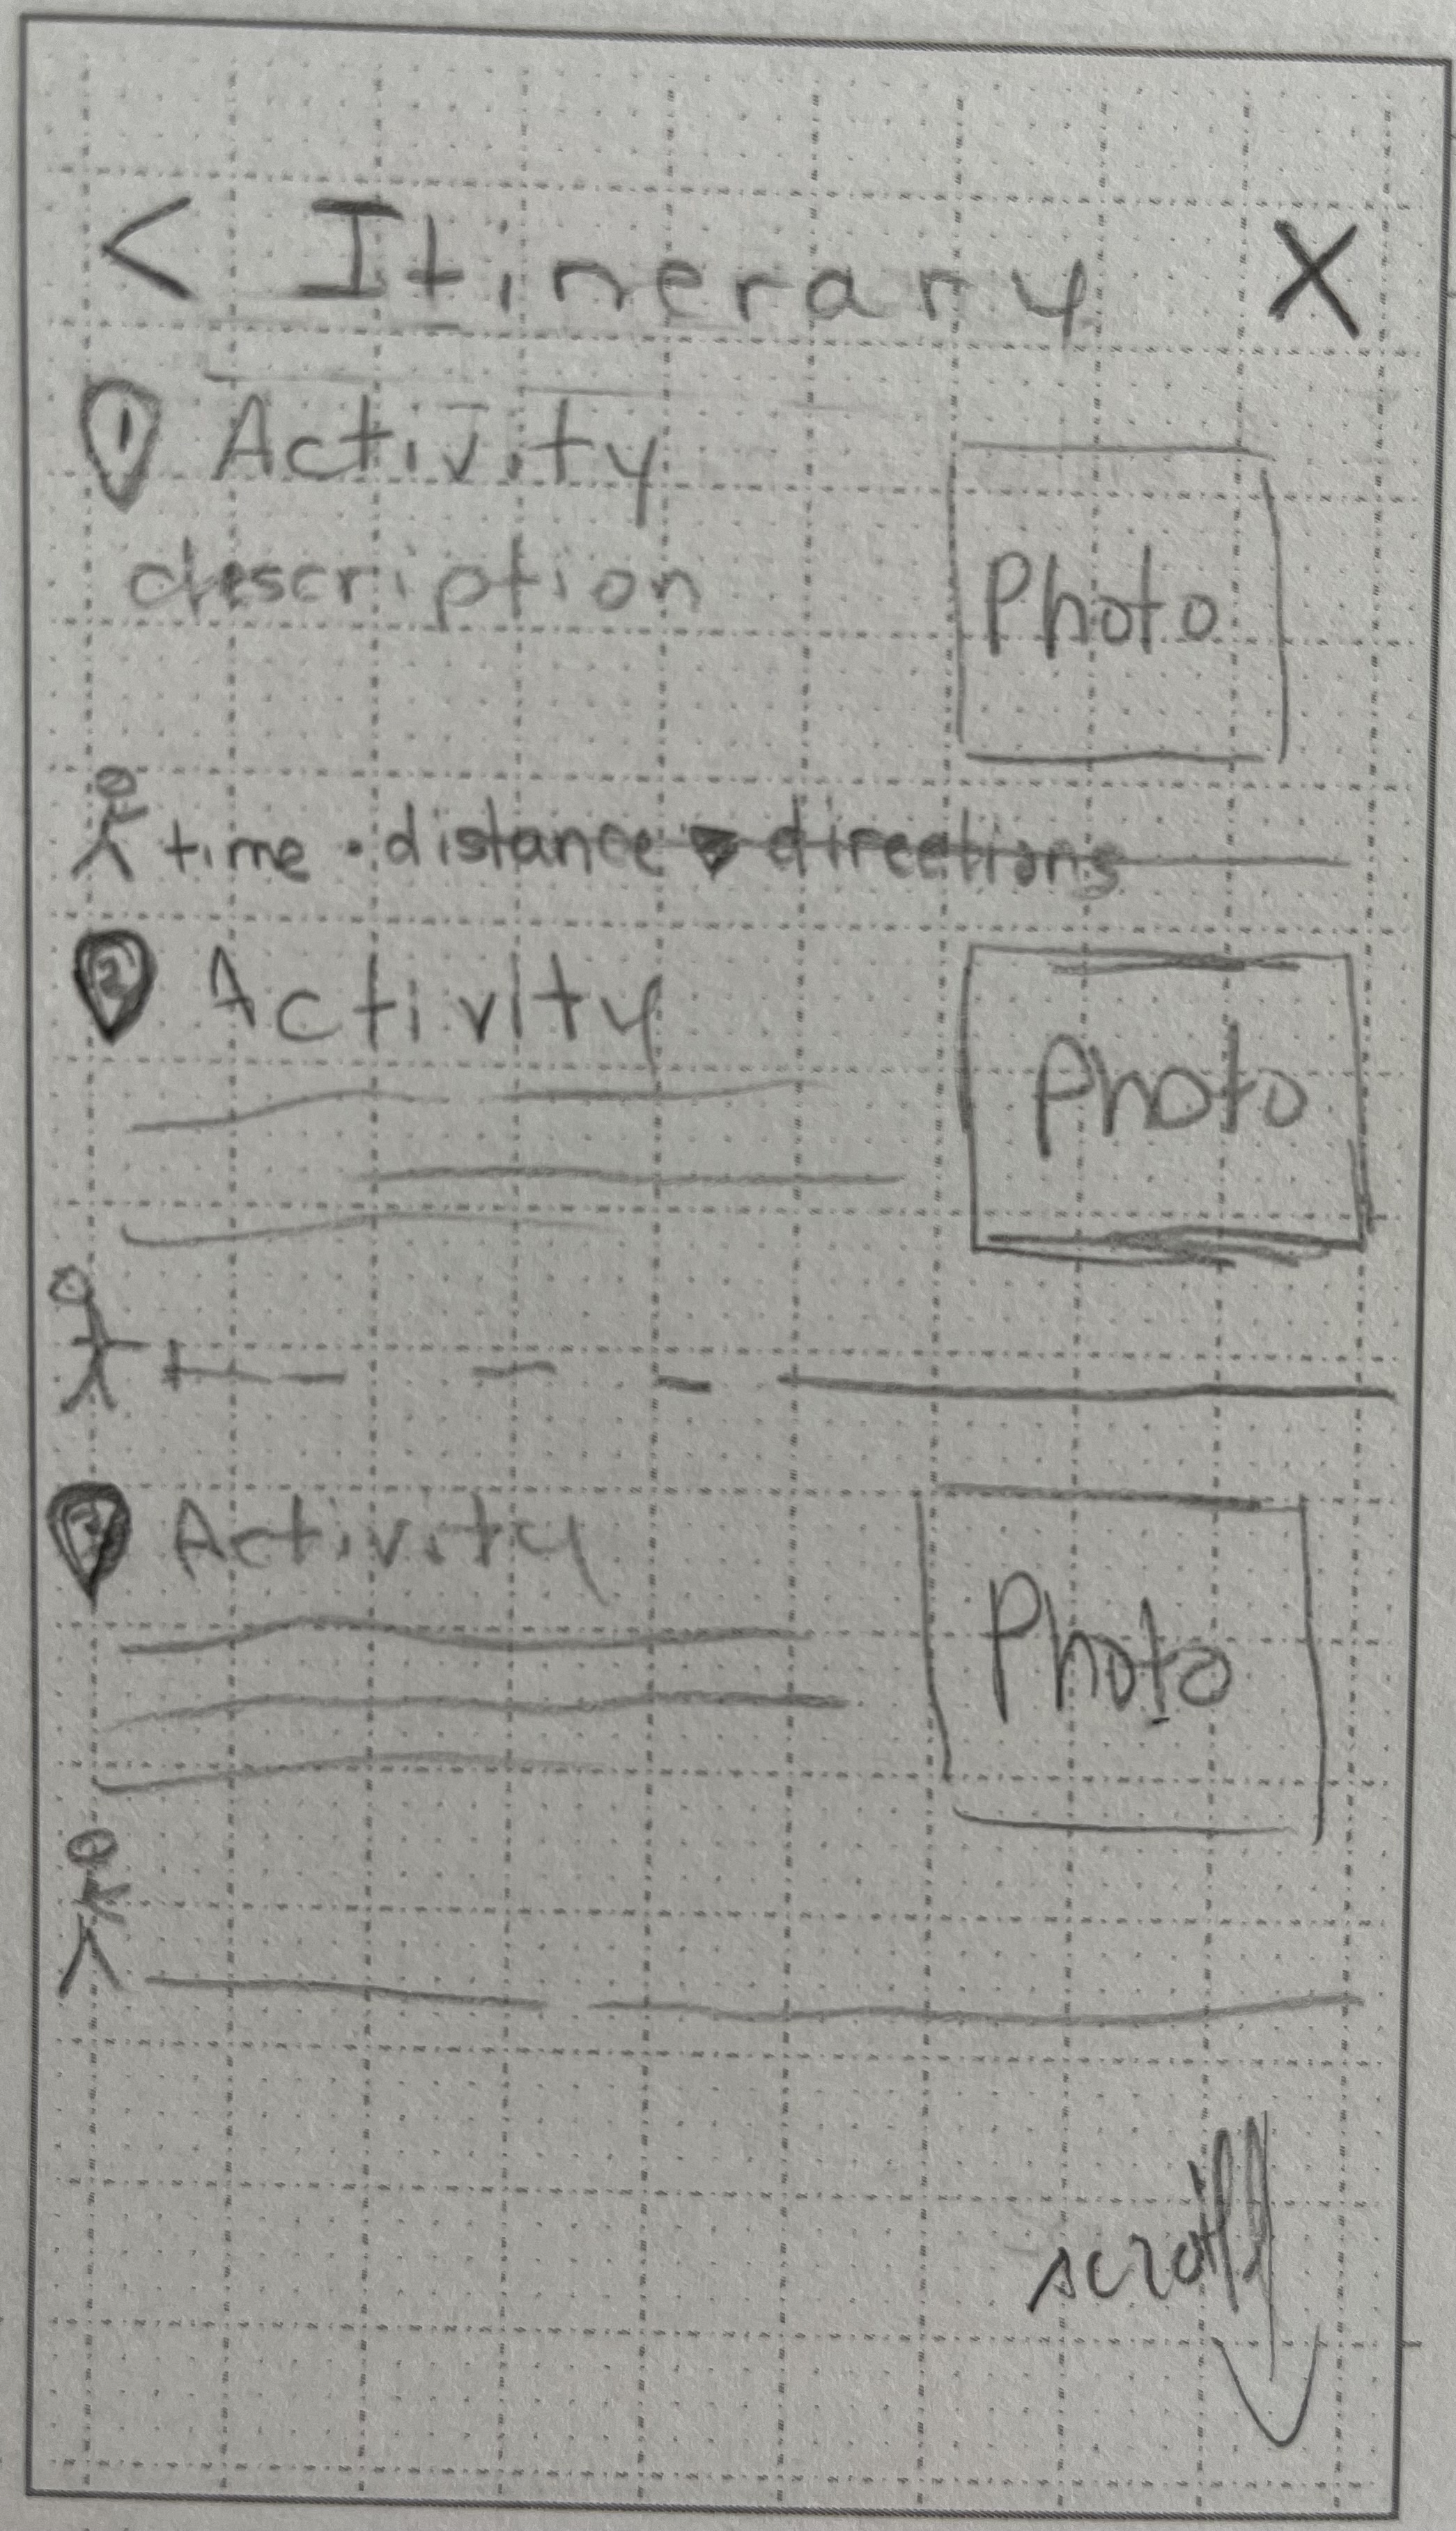 < Itinerary X
1 Activity
description
Photo
time · distance directions
2 Activity
Photo
3 Activity
Photo
scroll